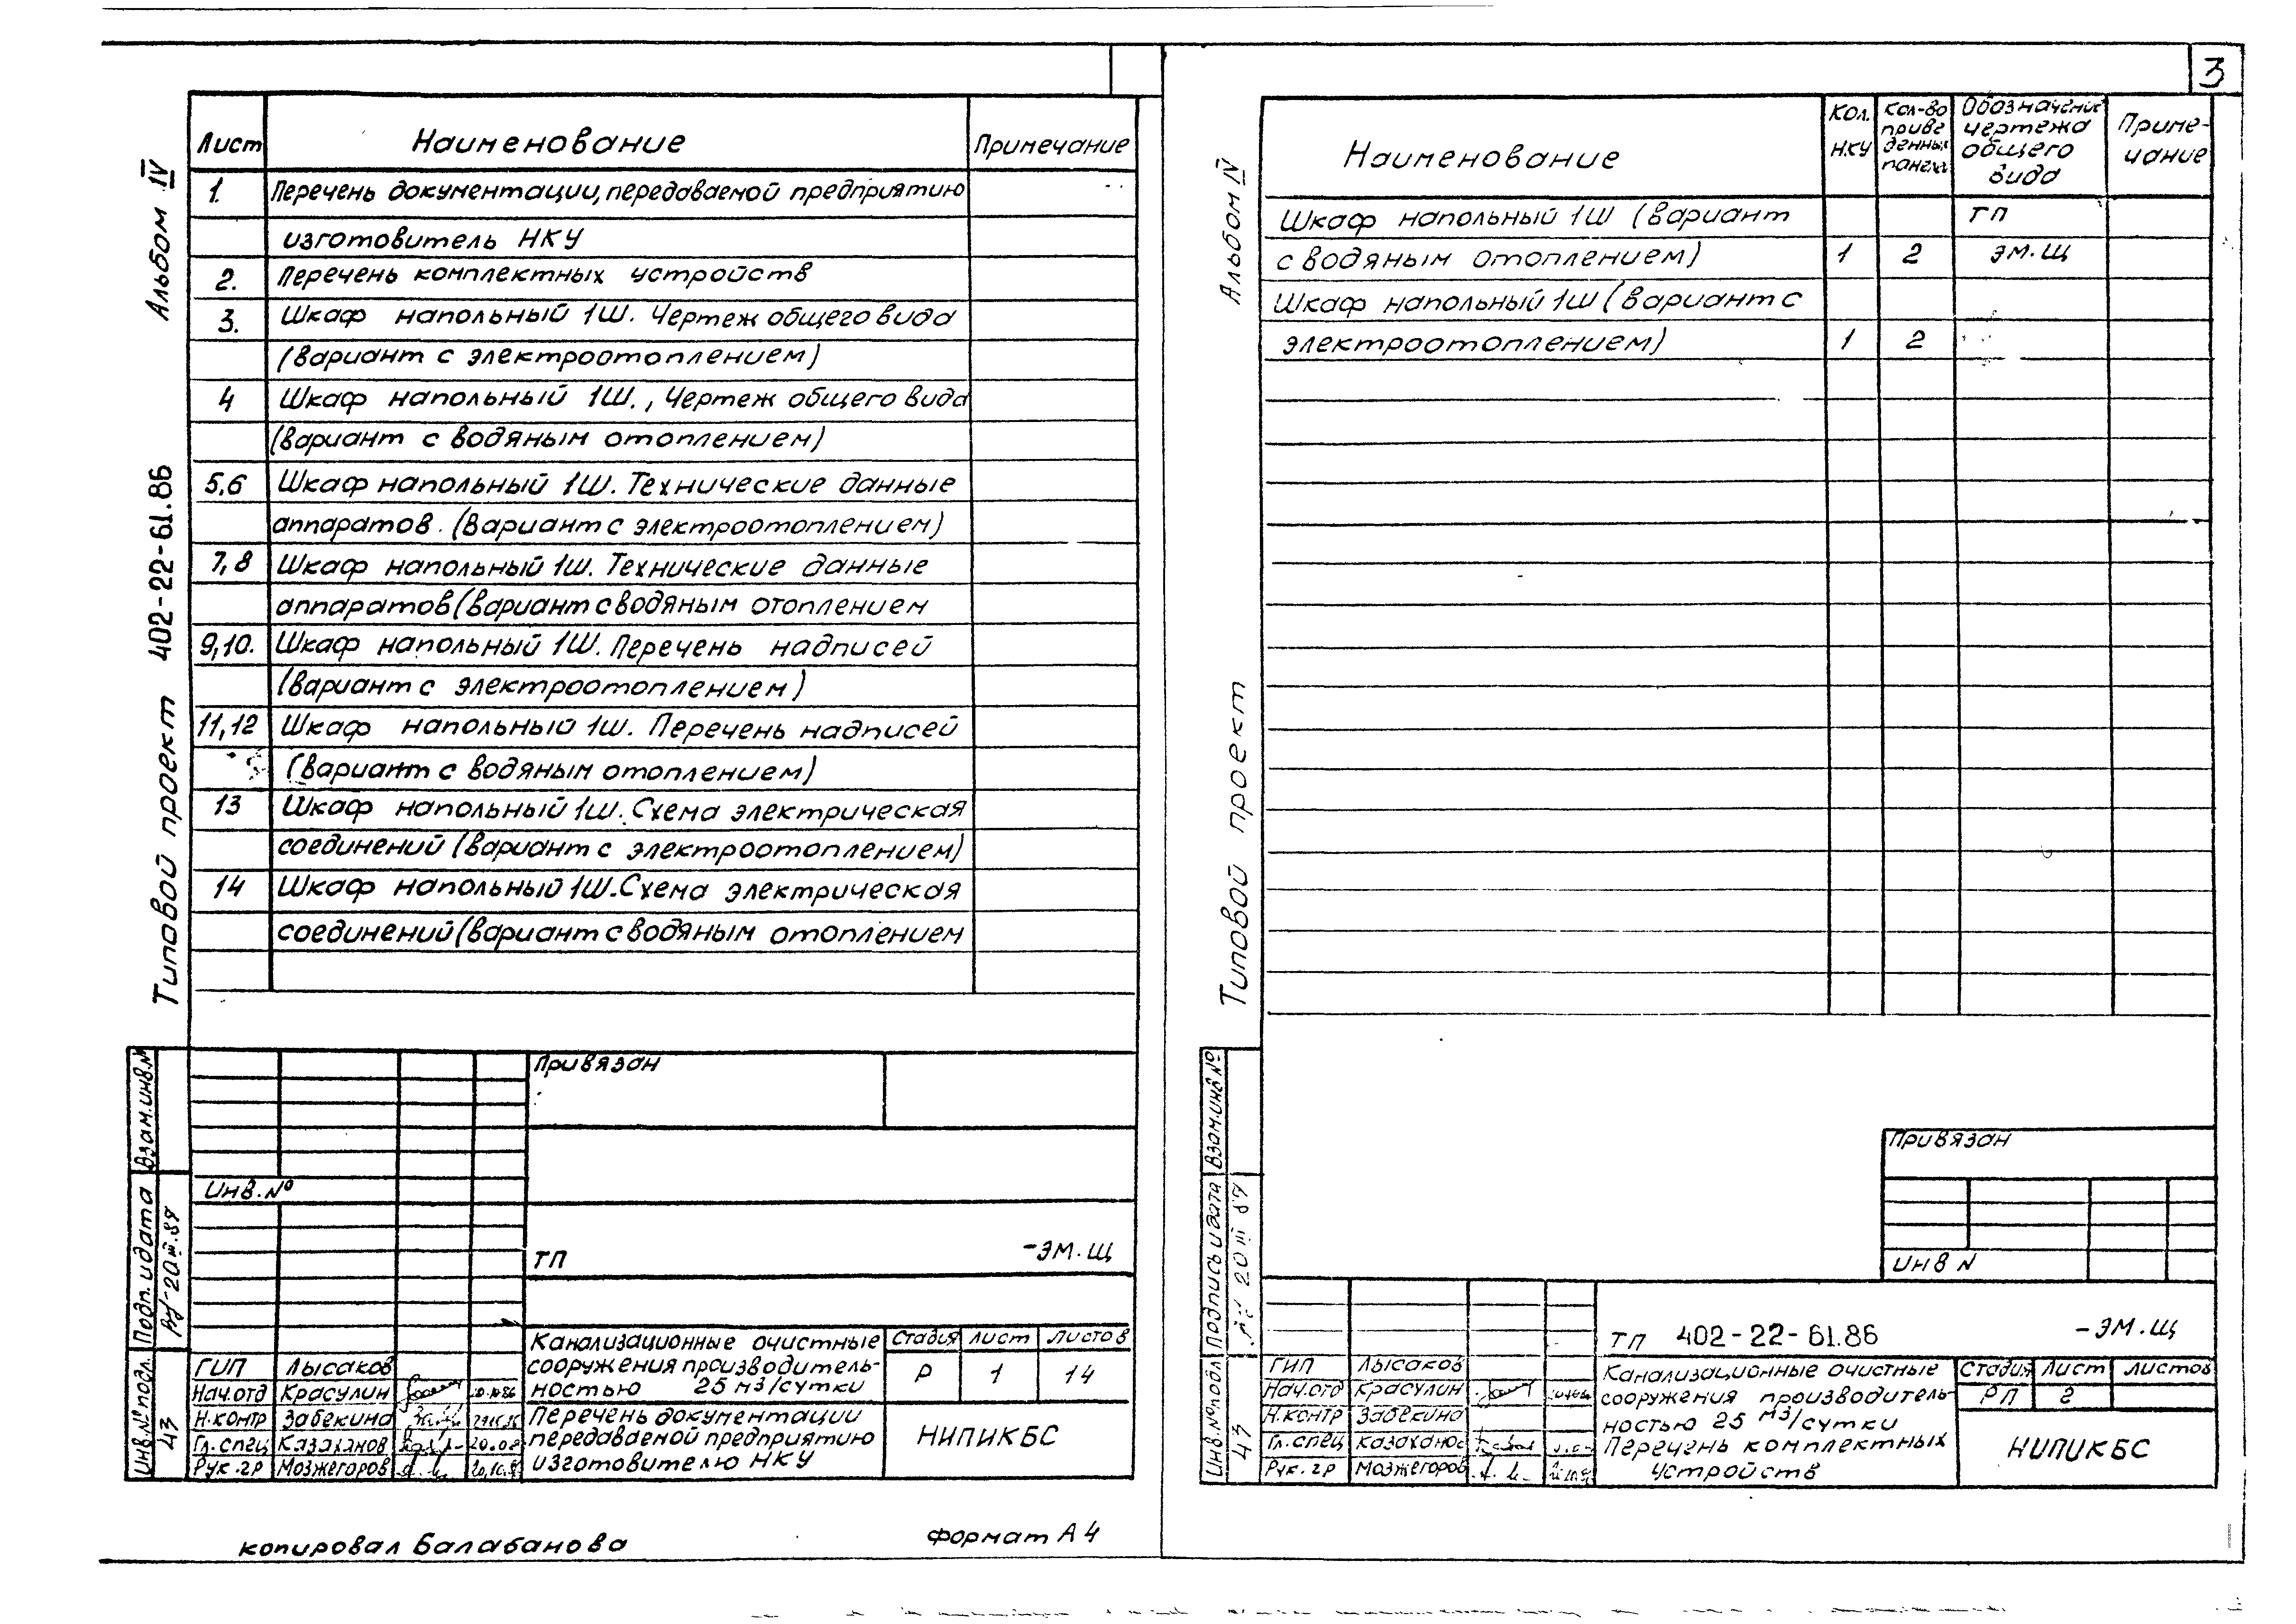 3
Альбом IV
Типовой проект 402-22-61.86
Лист Наименование Примечание
1. Перечень документации, передаваемой предприятию
изготовитель НКУ
2. Перечень комплектных устройств
3. Шкаф напольный 1Ш. Чертеж общего вида
(вариант с электроотоплением)
4 Шкаф напольный 1Ш., Чертеж общего вида
(вариант с водяным отоплением)
5,6 Шкаф напольный 1Ш. Технические данные
аппаратов. (вариант с электроотоплением)
7,8 Шкаф напольный 1Ш. Технические данные
аппаратов (вариант с водяным отоплением
9,10. Шкаф напольный 1Ш. Перечень надписей
(вариант с электроотоплением)
11,12 Шкаф напольный 1Ш. Перечень надписей
(вариант с водяным отоплением)
13 Шкаф напольный 1Ш. Схема электрическая
соединений (вариант с электроотоплением)
14 Шкаф напольный 1Ш. Схема электрическая
соединений (вариант с водяным отоплением
Взам.инв.№
Подп. и дата
20 III.87
Инв.№ подл.
43
Привязан
Инв.№
ТП -ЭМ.Щ
ГИП Лысаков
Нач.отд Красулин
Н.контр Забекина
Гл.спец Казаханов
Рук.гр Мозжегоров
Канализационные очистные
сооружения производитель-
ностью 25 м3/сутки
Стадия Лист Листов
Р 1 14
Перечень документации
передаваемой предприятию
изготовителю НКУ
НИПИКБС
копировал Балабанова
формат А4
Альбом IV
Типовой проект
Наименование
Кол. НКУ
Кол-во приве денных панелей
Обозначение чертежа общего вида
Приме-
чание
Шкаф напольный 1Ш (вариант ТП
с водяным отоплением) 1 2 ЭМ.Щ
Шкаф напольный 1Ш (вариант с
электроотоплением) 1 2
Взам.инв №
Подпись и дата
20 III 87
Инв.№ подл
43
Привязан
Инв N
ТП 402-22-61.86 -ЭМ.Щ
ГИП Лысаков
Нач.отд Красулин
Н.контр Забекина
Гл.спец Казаханов
Рук.гр Мозжегоров
Канализационные очистные
сооружения производитель-
ностью 25 м3/сутки
Стадия Лист Листов
РП 2
Перечень комплектных
устройств
НИПИКБС